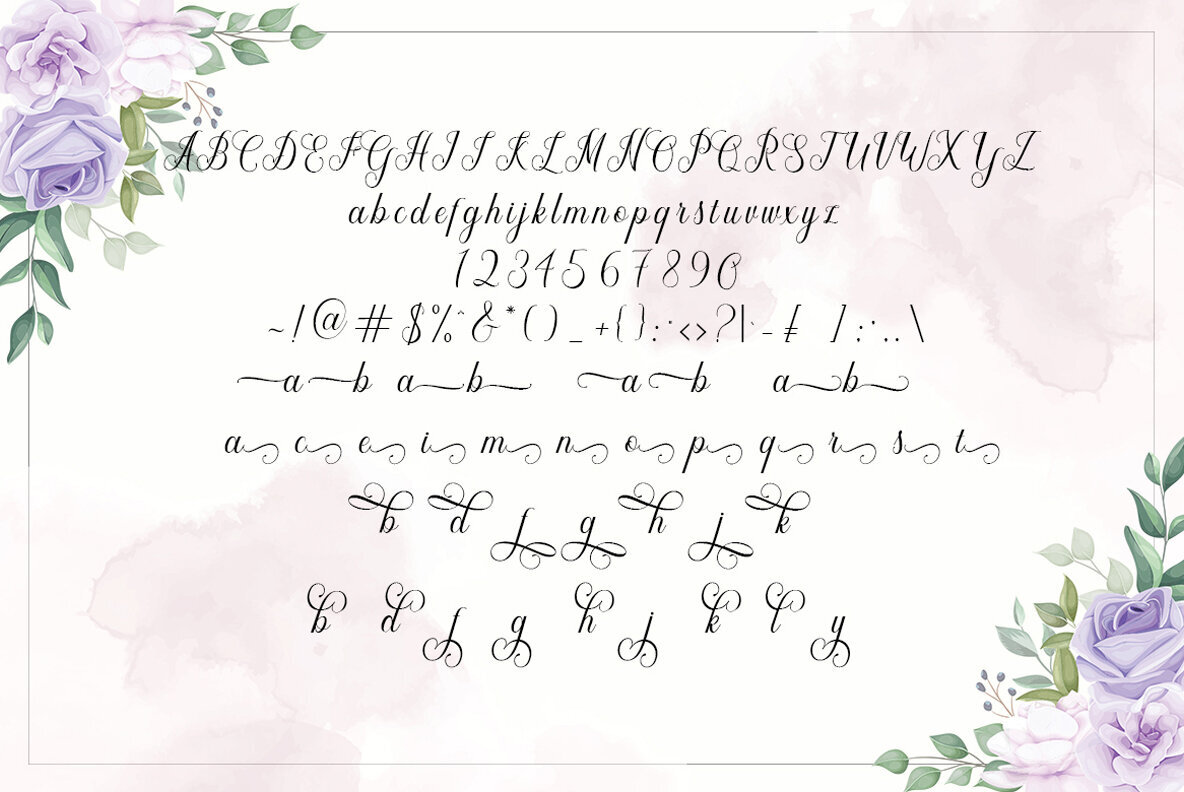 ABCDEFGHIJKLMNOPQRSTUVWXYZ
abcdefghijklmnopqrstuvwxyz
1234567890
~!@#$%^&*()_+{}:"<>?|`-[ ];',.\
a b a b a b a b
a c e i m n o p q r s t
b d f g h j k
b d f g h j k l y